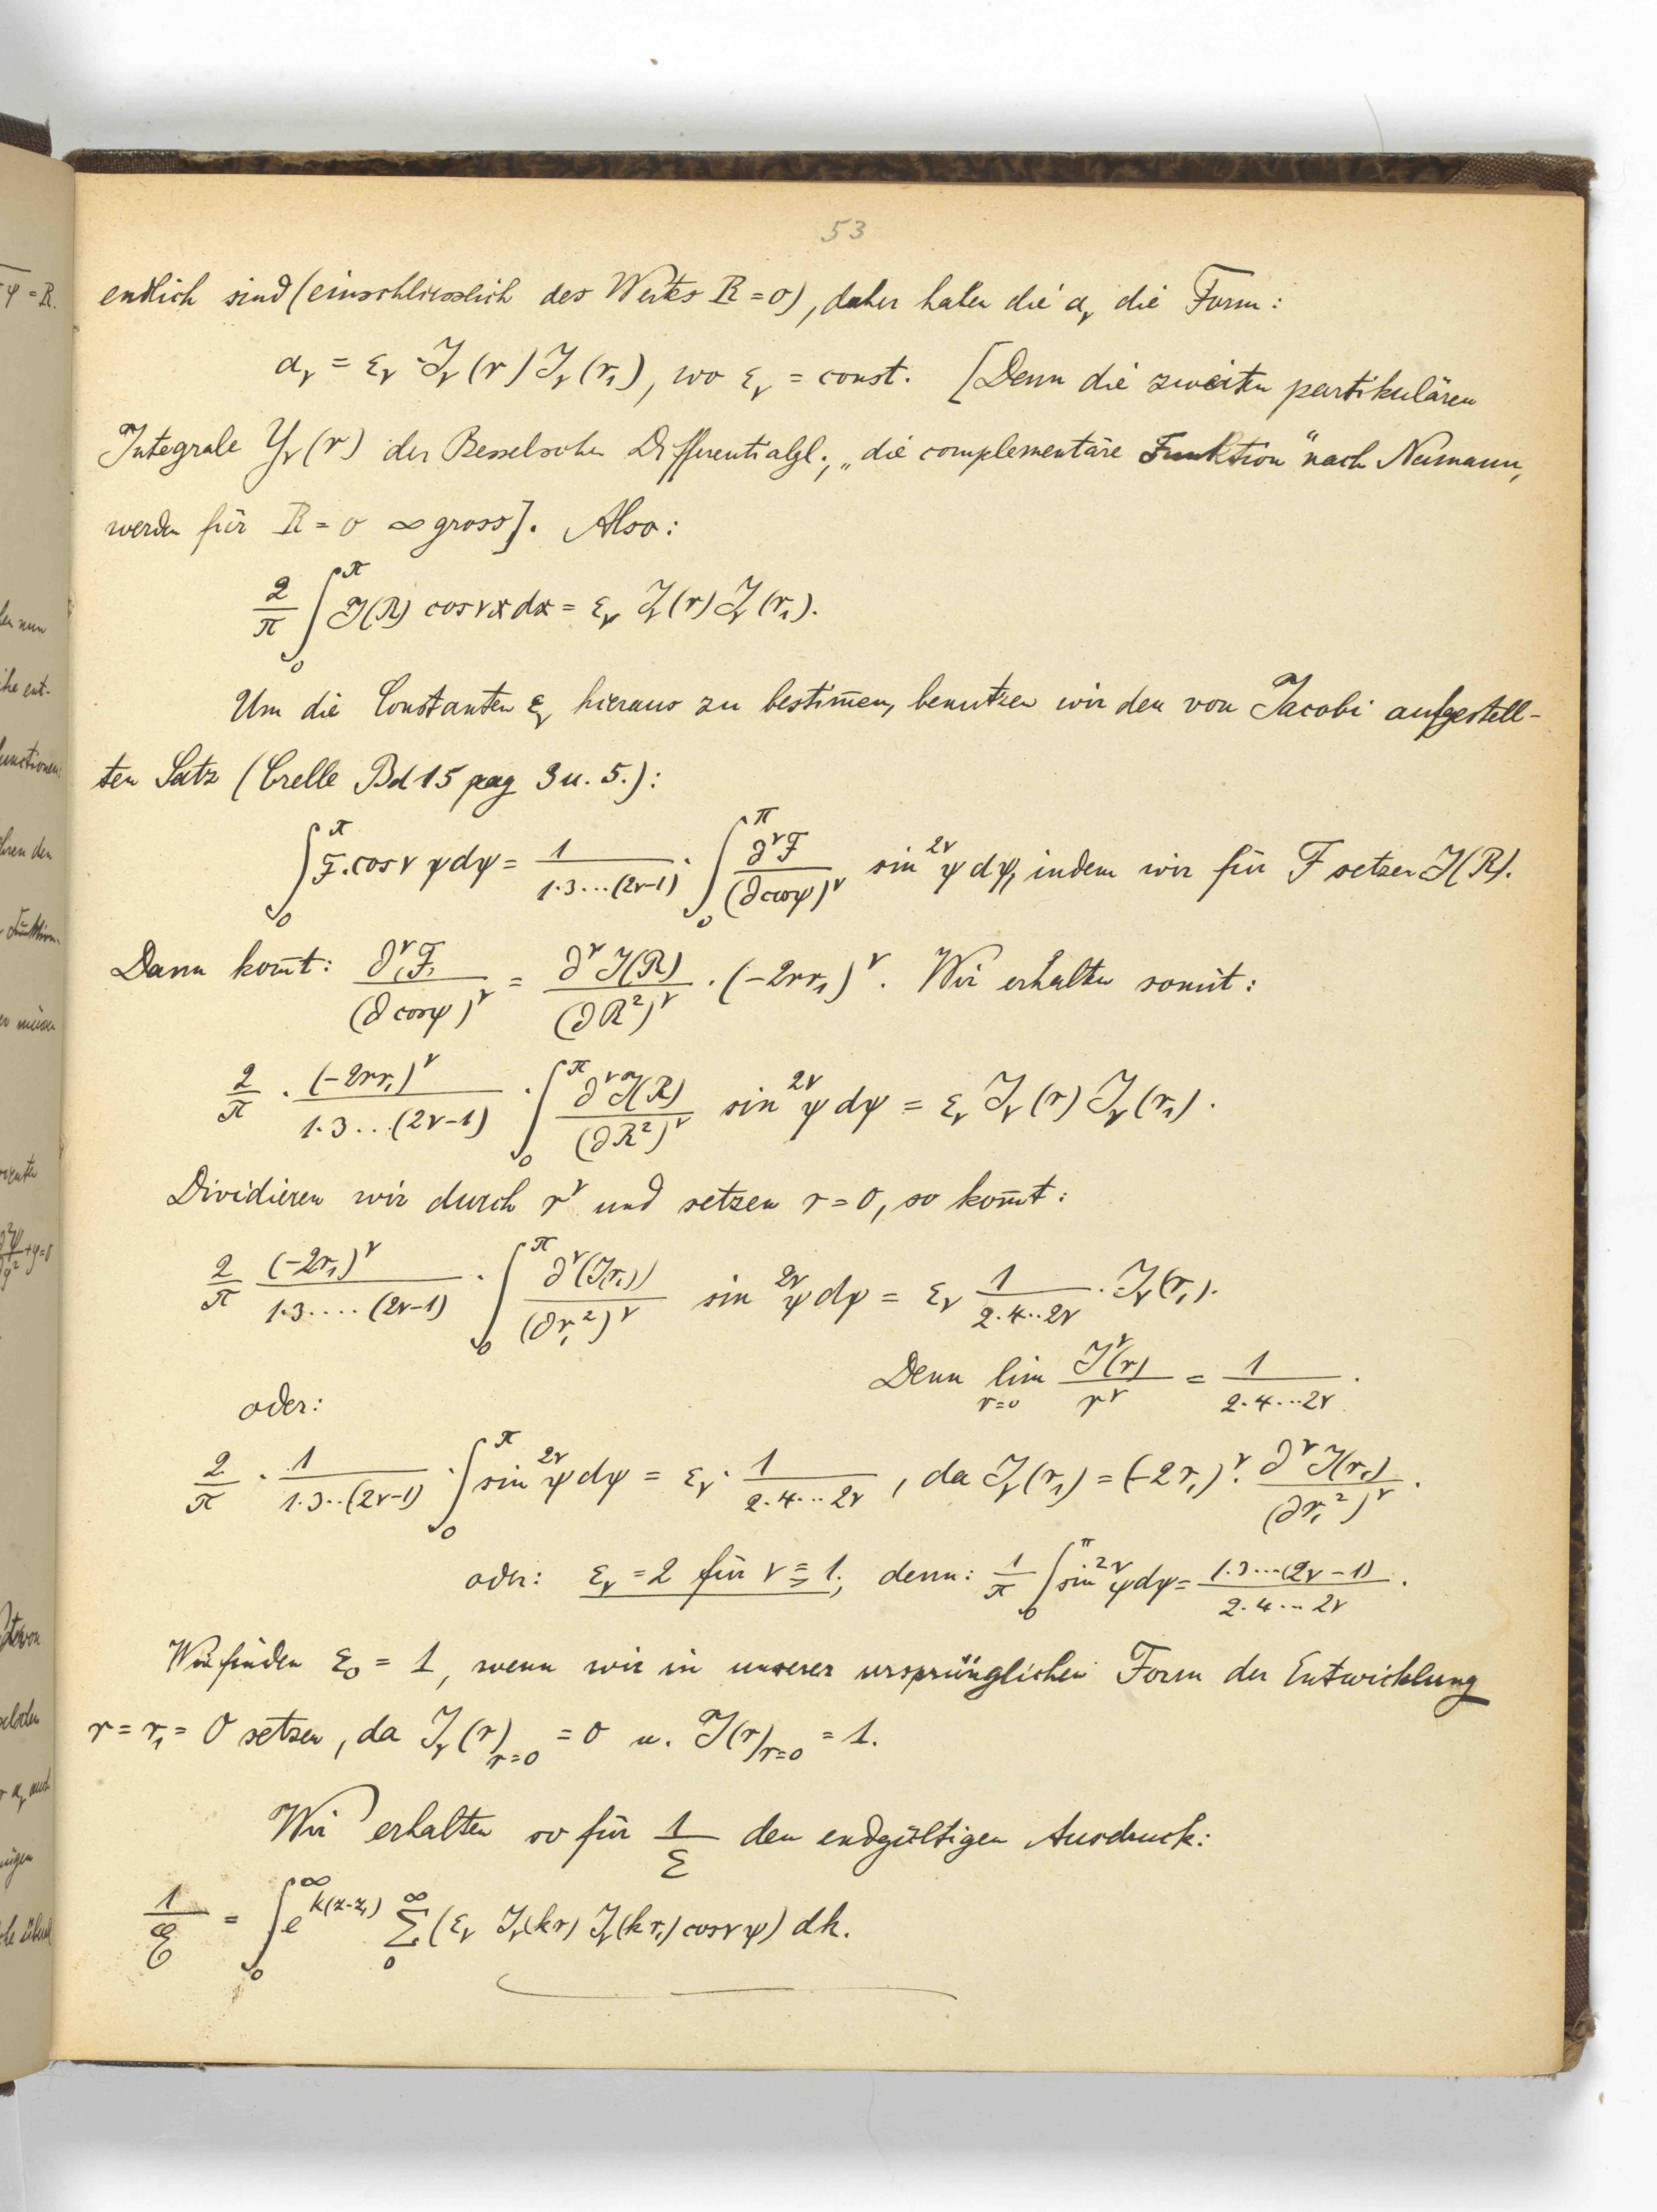 53
endlich sind (einschliesslich des Wertes R = 0), daher haben die α_ν die Form:
α_ν = ε_ν · J_ν(r) J_ν(r₁), wo ε_ν = const. [Denn die zweiten partikulären
Integrale Y_ν(r) der Besselschen Differentialgl., „die complementäre Funktion" nach Neumann,
werden für R = 0 ∞ gross]. Also:
2/π ∫₀^π J(R) cos νx dx = ε_ν J_ν(r) J_ν(r₁).
Um die Constanten ε_ν hieraus zu bestim̅en, benutzen wir den von Jacobi aufgestell-
ten Satz (Crelle Bd 15 pag 3 u. 5.):
∫₀^π F · cos ν ψ dψ = 1/(1·3···(2ν-1)) · ∫₀^π ∂^ν F/(∂ cosψ)^ν sin^2ν ψ dψ, indem wir für F setzen J(R).
Dann kom̅t: ∂^ν F/(∂ cosψ)^ν = ∂^ν J(R)/(∂R²)^ν · (-2rr₁)^ν. Wir erhalten somit:
2/π · (-2rr₁)^ν/(1·3...(2ν-1)) · ∫₀^π ∂^ν J(R)/(∂R²)^ν sin^2ν ψ dψ = ε_ν J_ν(r) J_ν(r₁).
Dividieren wir durch r^ν und setzen r = 0, so kom̅t:
2/π (-2r₁)^ν/(1·3·...(2ν-1)) · ∫₀^π ∂^ν(J(r₁))/(∂r₁²)^ν sin^2ν ψ dψ = ε_ν 1/(2·4··2ν) · J_ν(r₁).
Denn lim_{r=0} J^ν(r)/r^ν = 1/(2·4···2ν).
oder:
2/π · 1/(1·3··(2ν-1)) · ∫₀^π sin^2ν ψ dψ = ε_ν · 1/(2·4···2ν), da J_ν(r₁) = (-2r₁)^ν · ∂^ν J(r₁)/(∂r₁²)^ν.
oder: ε_ν = 2 für ν ≧ 1; denn: 1/π ∫₀^π sin^2ν ψ dψ = 1·3···(2ν-1)/(2·4···2ν).
Wir finden ε₀ = 1, wenn wir in unserer ursprünglichen Form der Entwicklung
r = r₁ = 0 setzen, da J_ν(r)_{r=0} = 0 u. J(r)_{r=0} = 1.
Wir erhalten so für 1/ℰ den endgültigen Ausdruck:
1/ℰ = ∫₀^∞ e^{k(z-z₁)} Σ₀^∞ (ε_ν J_ν(kr) J_ν(kr₁) cos ν ψ) dk.